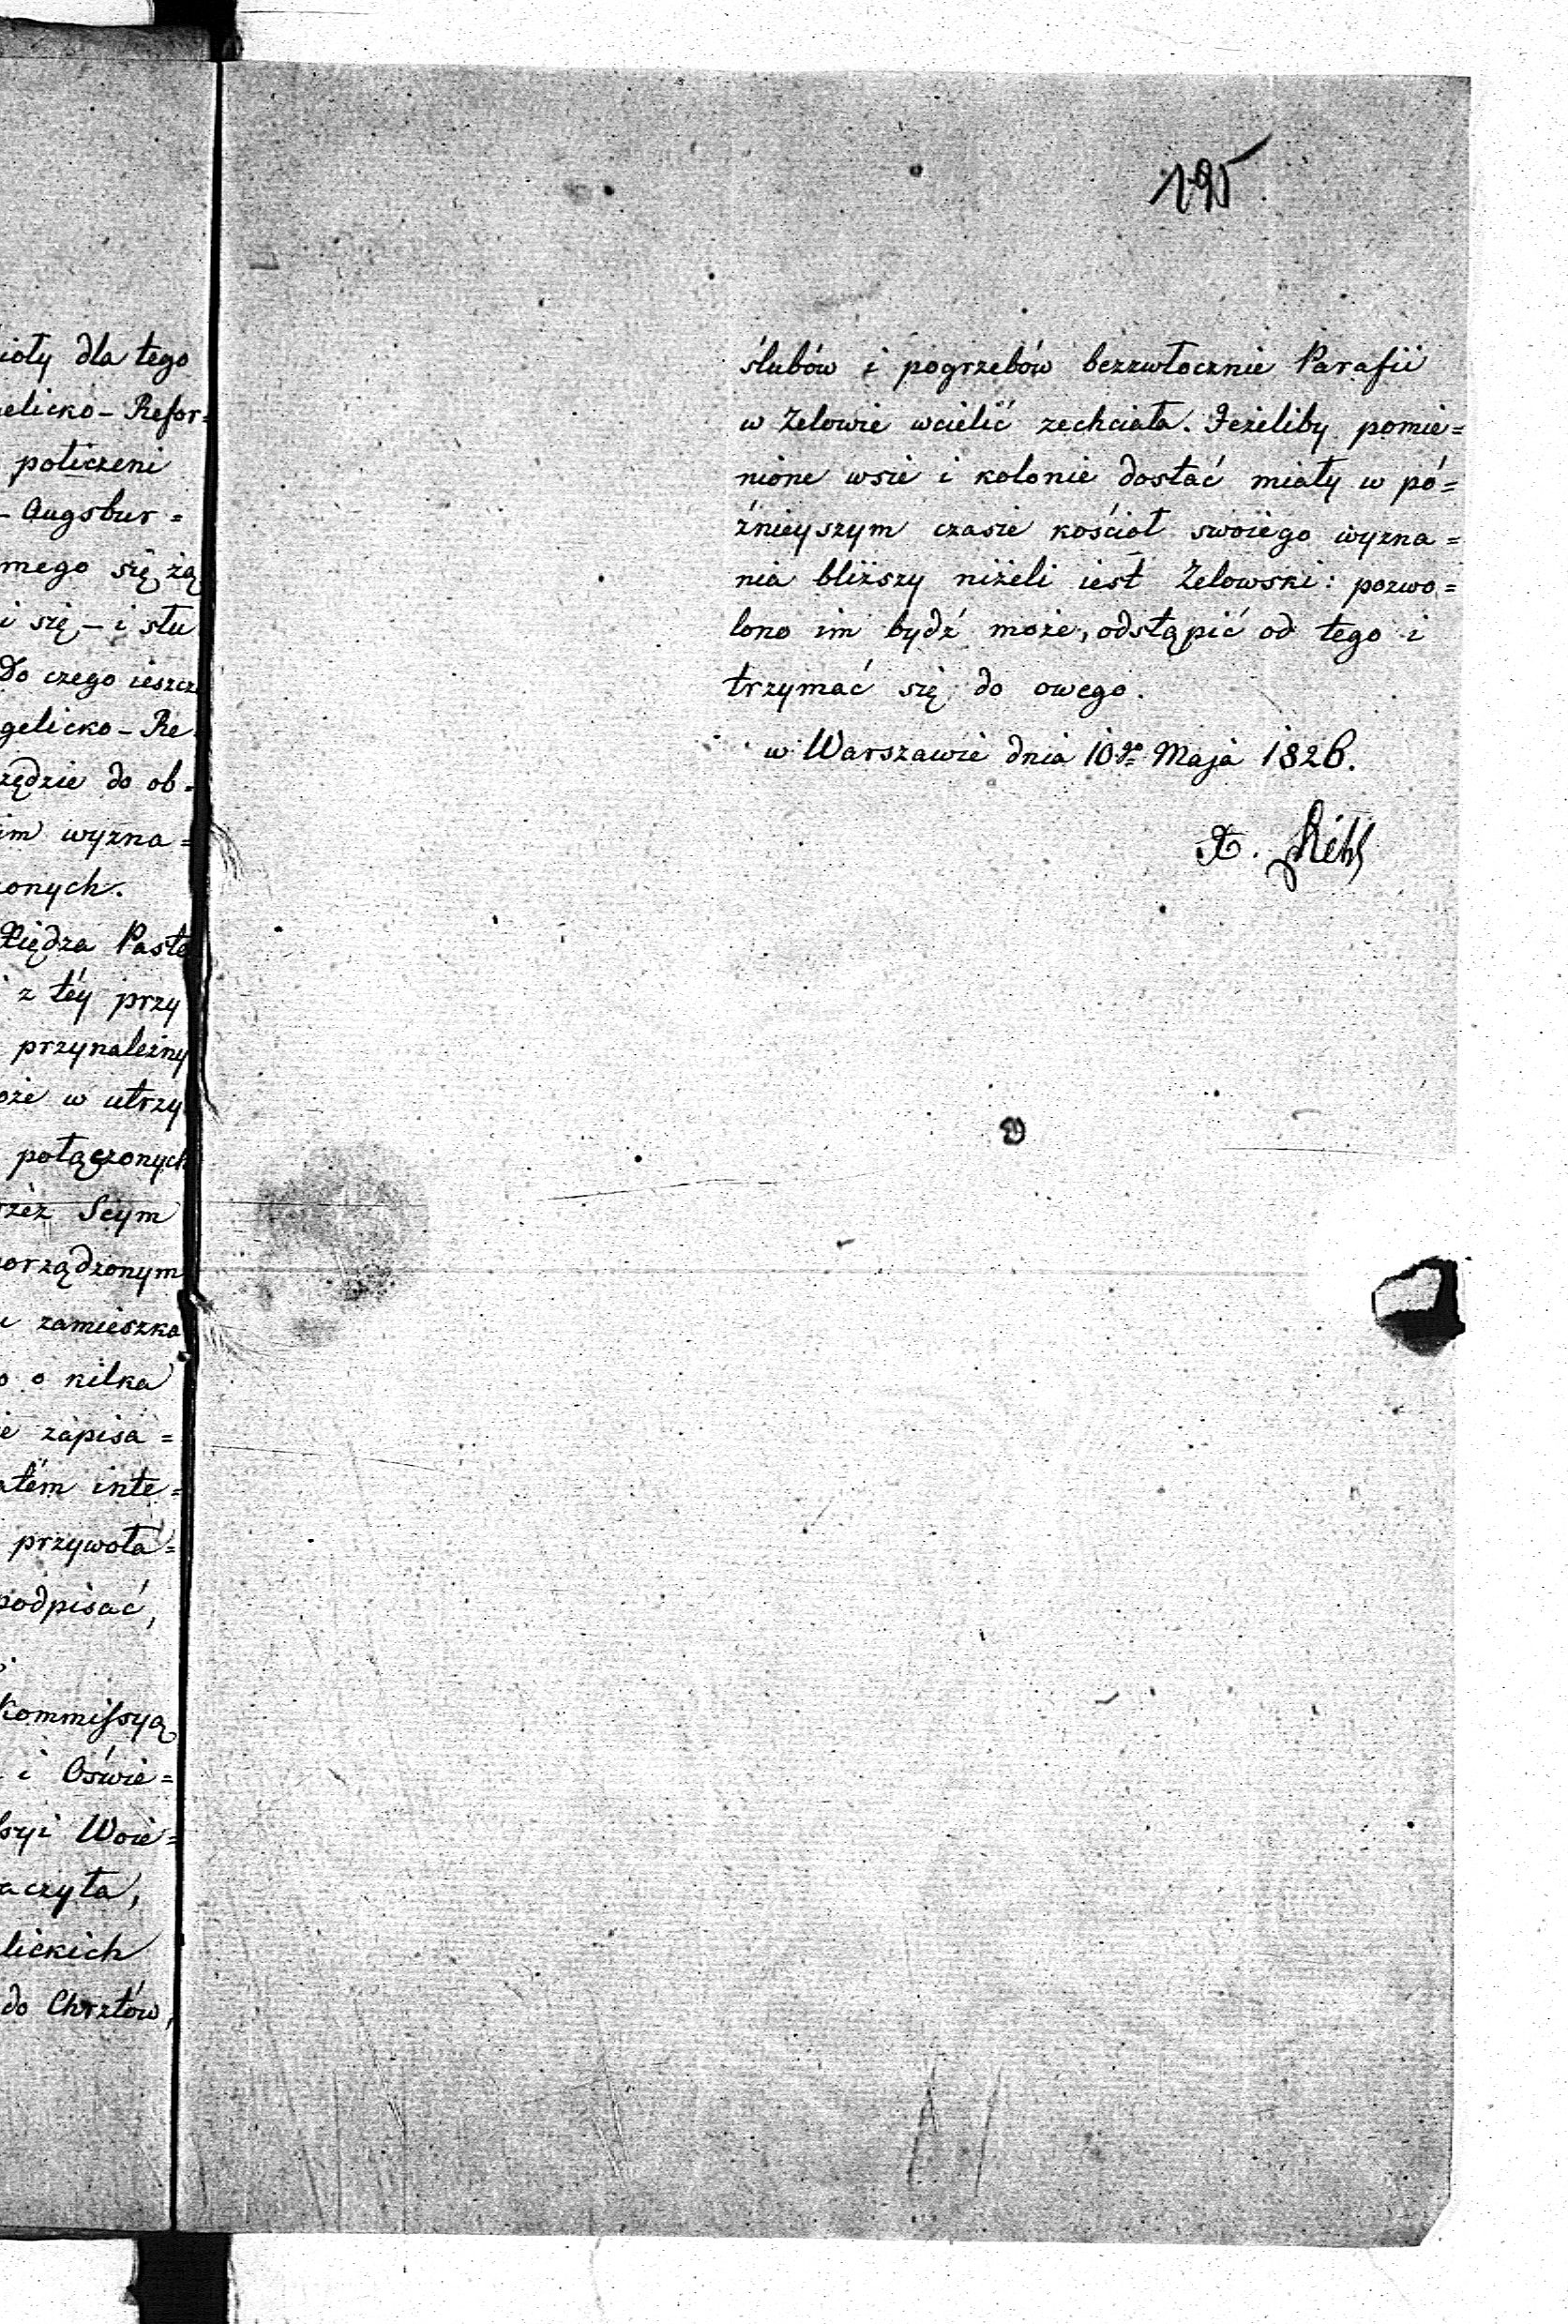 ioły dla tego
elicko - Refor=
policzeni
- Augsbur=
mego się zą
i się - i stu
Do czego ieszcz
gelicko - Re
zędzie do ob=
im wyzna=
onych.
Xiędza Paste
z téy przy
przynależny
oże w utrzy
połączonych
rzéz Seym
orządzonym
zamieszka
o kilka
ie zapisa=
atém inte=
przywoła=
podpisać,
Kommissyą
i Oświe=
syi Woie=
aczyła,
lickich
do Chrztów,
195
ślubów i pogrzebów bezzwłocznie Parafii
w Zelowie wcielić zechciała. Jeżeliby pomie=
nione wsie i kolonie dostać miały w pó=
źnieyszym czasie kościoł swoiego wyzna=
nia bliższy niżeli iest Zelowski: pozwo=
lono im bydź może, odstąpić od tego i
trzymać się do owego.
w Warszawie dnia 10go Maja 1826.
X.